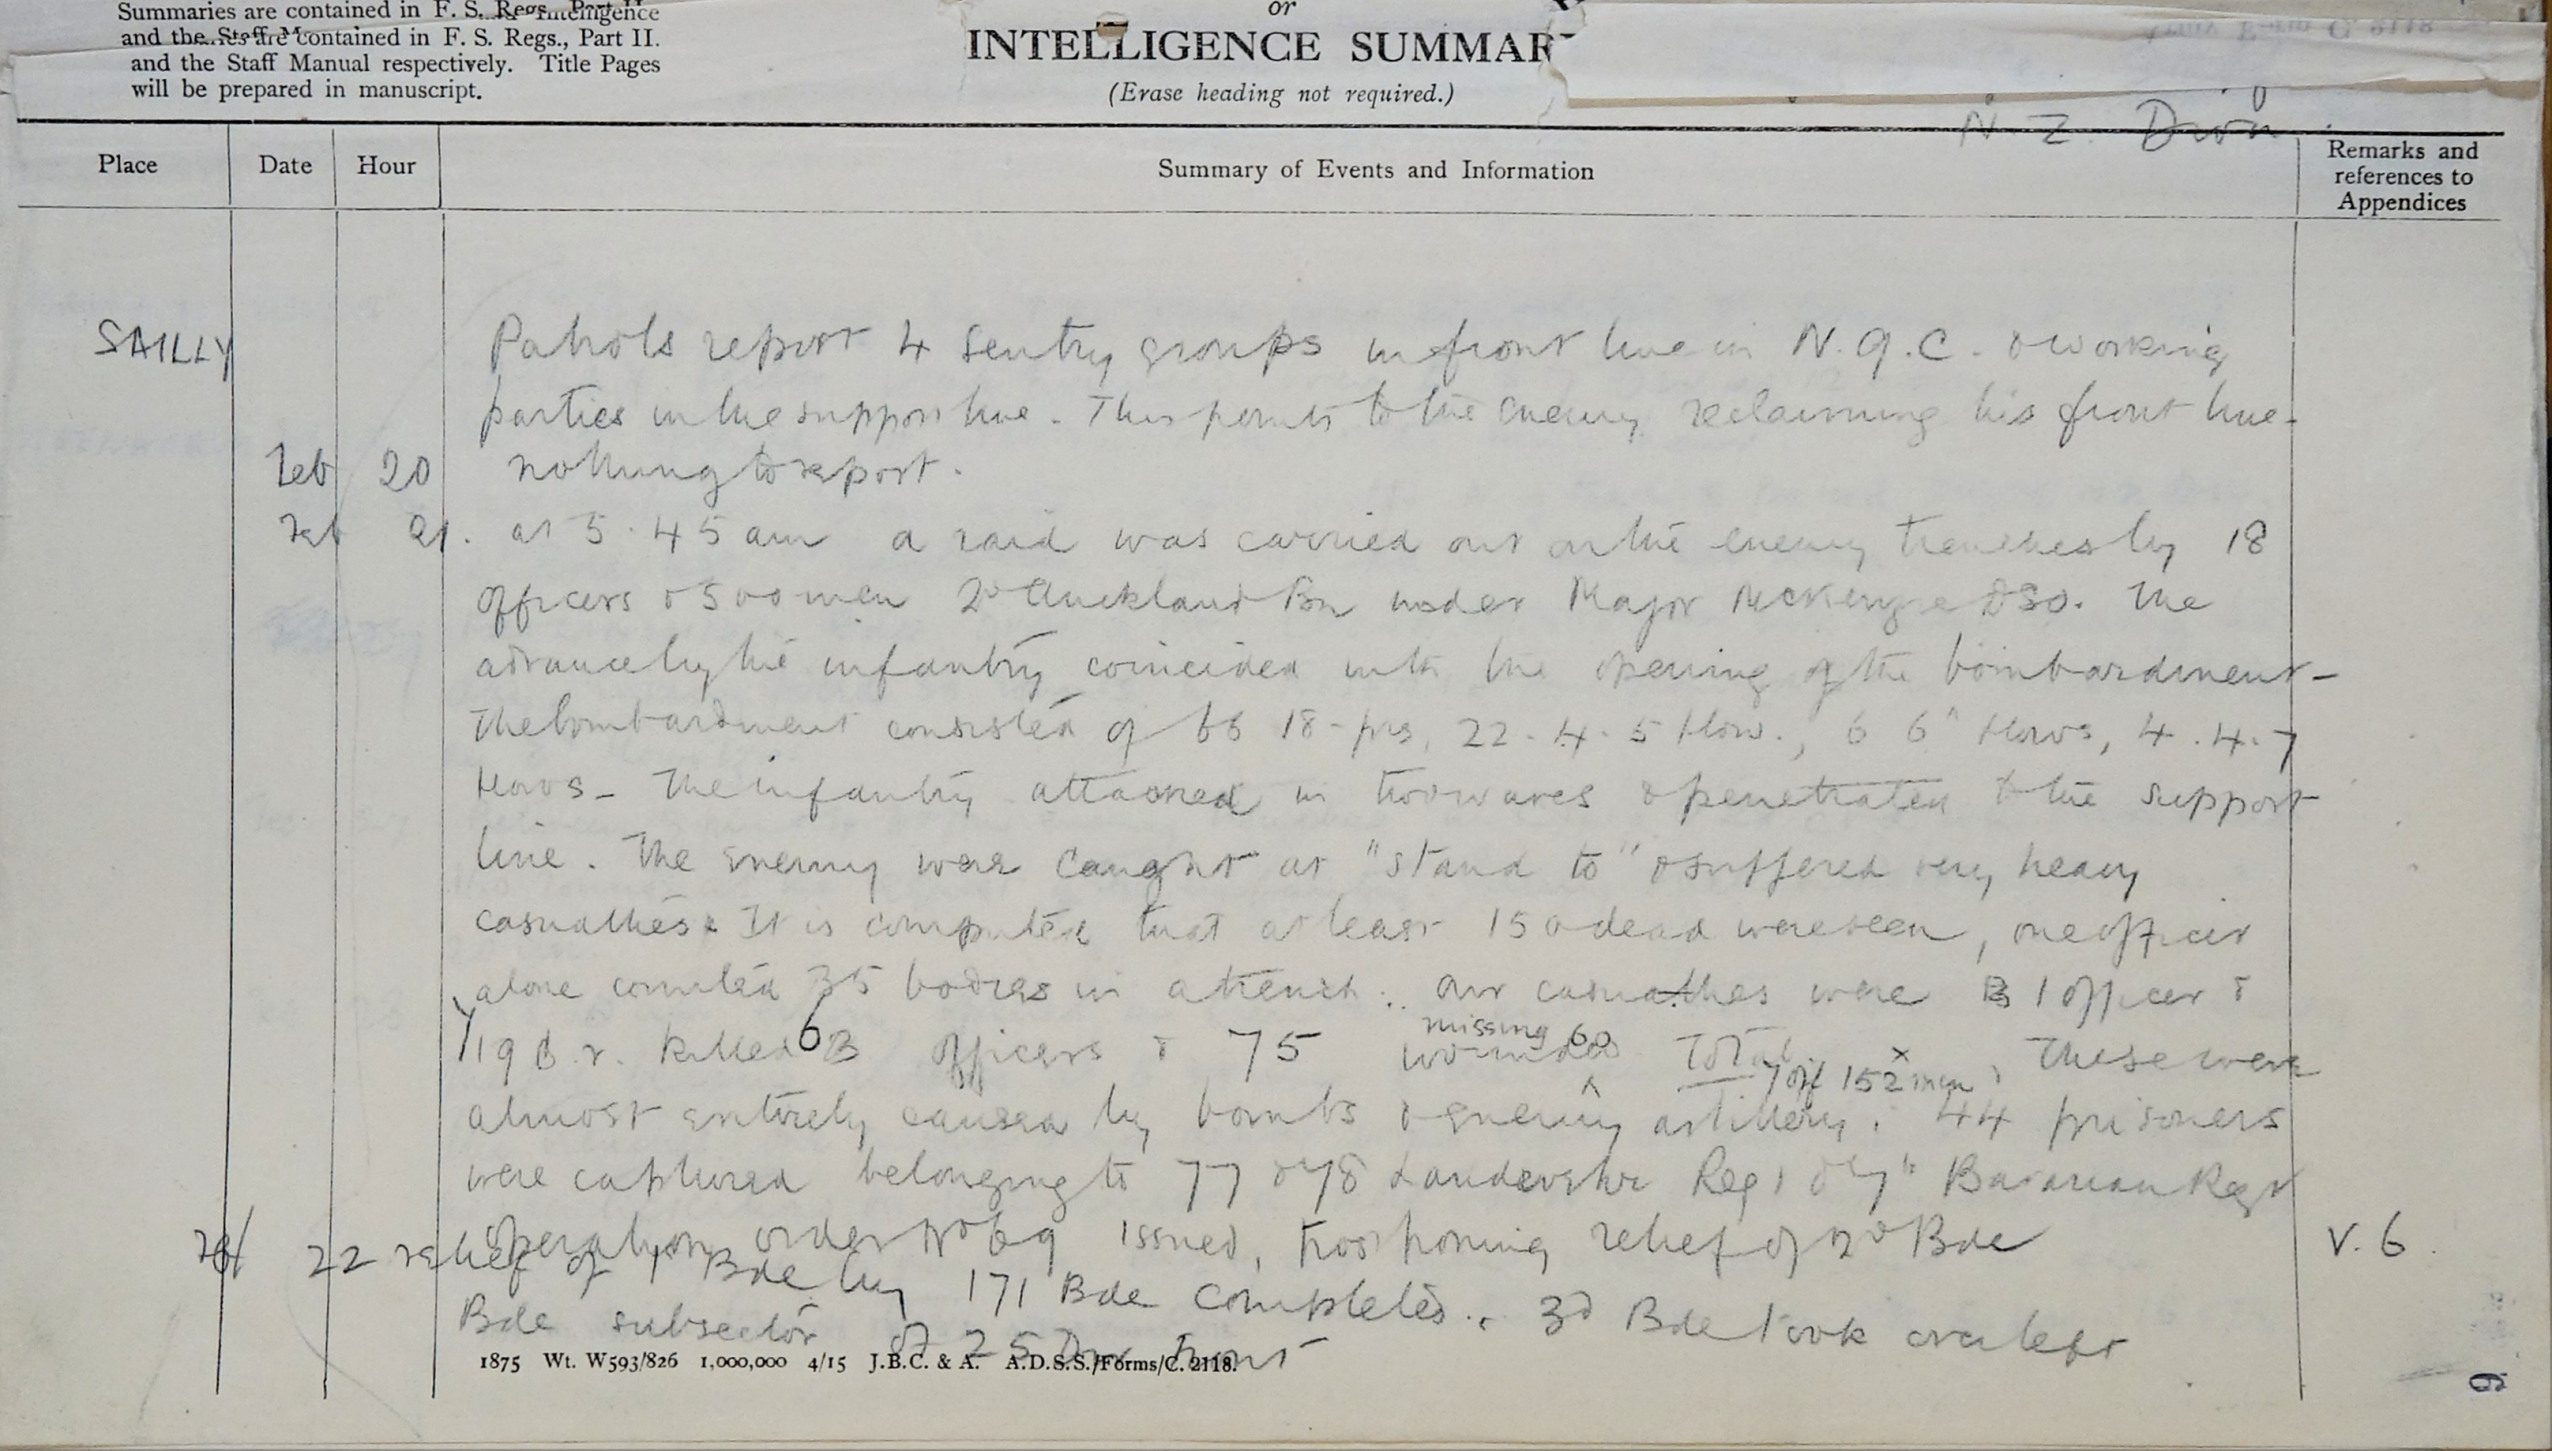 Summaries are contained in F. S. Regs., Part II
and the Staff Manual
are contained in F. S. Regs., Part II.
and the Staff Manual respectively. Title Pages
will be prepared in manuscript.
or
INTELLIGENCE SUMMAR
(Erase heading not required.)
Army Form C. 2118
N. Z. Divn
Place
Date
Hour
Summary of Events and Information
Remarks and
references to
Appendices
SAILLY
Patrols report 4 sentry groups in front line in N.9.C. & working
parties in the support line. This points to the enemy reclaiming his front line.
Feb 20 nothing to report.
Feb 21. at 5.45 am a raid was carried out on the enemy trenches by 18
officers & 500 men 2d Auckland Bn under Major McKenzie DSO. The
advance by the infantry coincided with the opening of the bombardment -
The bombardment consisted of 66 18-prs, 22. 4.5 How., 6 6" Hows, 4. 4.7
Hows - The infantry attacked in two waves & penetrated to the support
line. The enemy were caught at "stand to" & suffered very heavy
casualties. It is computed that at least 150 dead were seen, one officer
alone counted 35 bodies in a trench. our casualties were 1 officer &
19 O.r. killed 6 officers & 75 wounded missing 60 Total 7 off 152 men. These were
almost entirely caused by bombs & enemy artillery. 44 prisoners
were captured belonging to 77 & 78 Landwehr Regt & Bavarian Regt
Operation order No 69 issued, postponing relief of 2d Bde
V. 6.
22 relief of 1st Bde by 171 Bde completed. 3d Bde took over left
Bde subsector of 25 Div Front
1875 Wt. W593/826 1,000,000 4/15 J.B.C. & A. A.D.S.S./Forms/C. 2118.
9